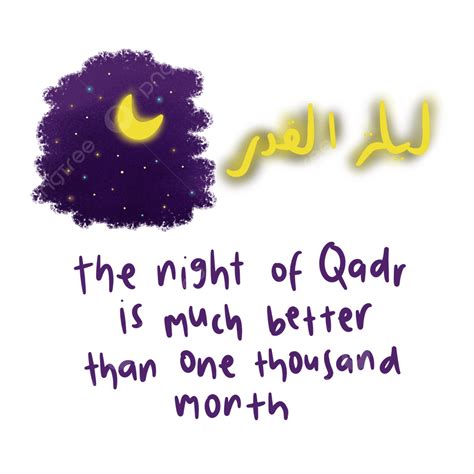 ليلة القدر
the night of Qadr
is much better
than one thousand
month